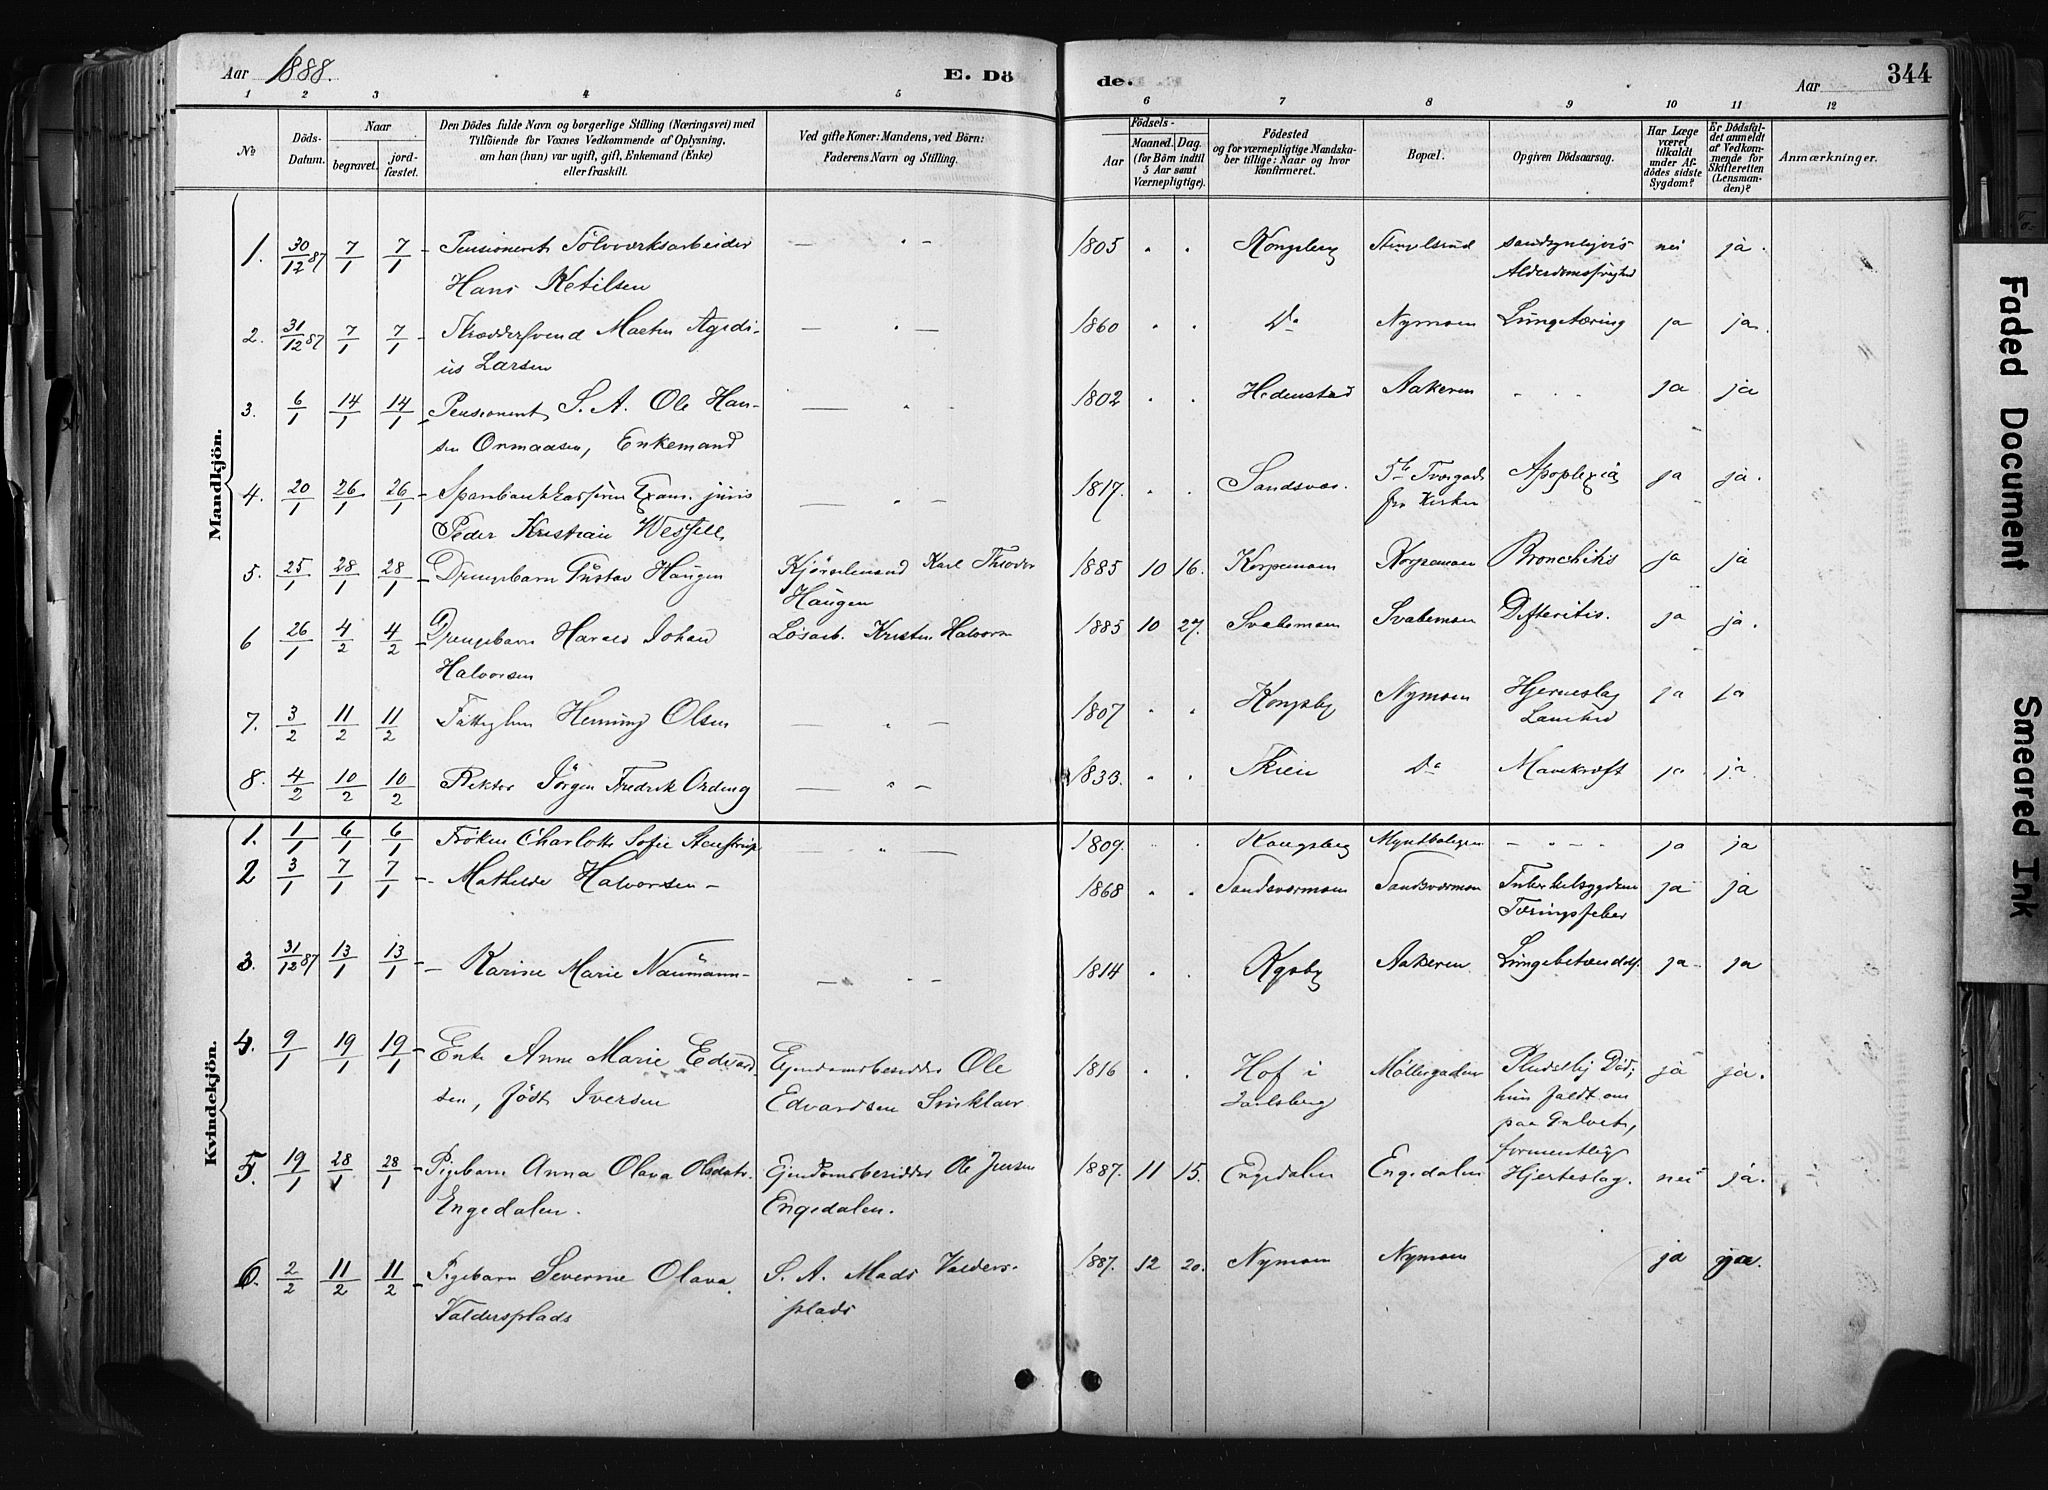 Aar 1888. E. Dö de. Aar 344
1 2 3 4 5 6 7 8 9 10 11 12
№
Döds-Datum.
Naar
begravet.
jord-fæstet.
Den Dödes fulde Navn og borgerlige Stilling (Næringsvei) med
Tilföiende for Voxnes Vedkommende af Oplysning,
om han (hun) var ugift, gift, Enkemand (Enke)
eller fraskilt.
Ved gifte Koner: Mandens, ved Börn:
Faderens Navn og Stilling.
Födsels-
Aar
Maaned. Dag.
(for Börn indtil
5 Aar samt
Værnepligtige).
Födested
og for værnepligtige Mandska-
ber tillige: Naar og hvor
konfirmeret.
Bopæl.
Opgiven Dödsaarsag.
Har Læge
været
tilkaldt
under Af-
dödes sidste
Sygdom?
Er Dödsfal-
det anmeldt
af Vedkom-
mende for
Skifteretten
(Lensman-
den)?
Anmærkninger.
Mandkjön.
1. 30/12 87 7/1 7/1 Pensioneret Sölvværksarbeider — " — 1805 " " Kongsberg sandsynligvis nei ja.
Hans Ketilsen
2. 31/12 87 7/1 7/1 Skræddersvend Martin Agedi- — " — 1860 " " Do Nymoen Lungetæring ja ja.
us Larsen
3. 6/1 14/1 14/1 Pensioneret S. A. Ole Han- — " — 1802 " " Hedenstad Aakeren " " " ja ja
sen Ormaasen, Enkemand
4. 20/1 26/1 26/1 Exam. juris — " — 1817. " " Sandsvær. 5te Tvergade Apoplexia ja ja.
Peder Kristian Wessell fra Kirken
5. 25/1 28/1 28/1 Drengebarn Gustav Haugen Kjörselmand Karl Theodor 1885 10 16. Korpemoen Korpemoen Bronchitis ja ja
Haugen
6 26/1 4/2 4/2 Drengebarn Harald Johan Lösarb. Kristen Halvorsn 1885 10 27. Svabemoen Svabemoen Difteritis. ja ja.
Halvorsen
7. 3/2 11/2 11/2 Henning Olsen — " — 1807 " " Kongsbg Nymoen Hjerneslag ja ja
Lamhed
8. 4/2 10/2 10/2 Rektor Jörgen Fredrik Ording — " — 1833. " " Skien Do Mavekræft ja ja.
Kvindekjön.
1. 1/1 6/1 6/1 Fröken Charlotte Sofie Stenstrup — " — 1809. " " Kongsberg Myntboligen — " — " — ja ja
2 3/1 7/1 7/1 - Mathilde Halvorsen - 1868 " " Sandsværmoen Sandsværmoen ja ja
Tæringsfeber
3. 31/12 87 13/1 13/1 - Karine Marie Naumann- — " — 1814 " " Kgsbg Aakeren Lungebetændels. ja ja
4. 9/1 19/1 19/1 Enke Anne Marie Edvard- Ejendomsbesidder Ole 1816 " " Hof i Möllergaden Pludselig Död; ja ja.
sen, födt Iversen Edvardsen Sinklair Jarlsberg hun faldt om
paa Gulvet,
formentlig
5. 19/1 28/1 28/1 Pigebarn Anna Olava Olsdatr. Ejendomsbesidder Ole Jensen 1887. 11 15. Engedalen Engedalen Hjerteslag. nei ja.
Engedalen. Engedalen.
6. 2/2 11/2 11/2 Pigebarn Severine Olava S. A. Mads Valders- 1887. 12 20. Nymoen Nymoen ja ja.
Valdersplads plads
Faded Document
Smeared Ink